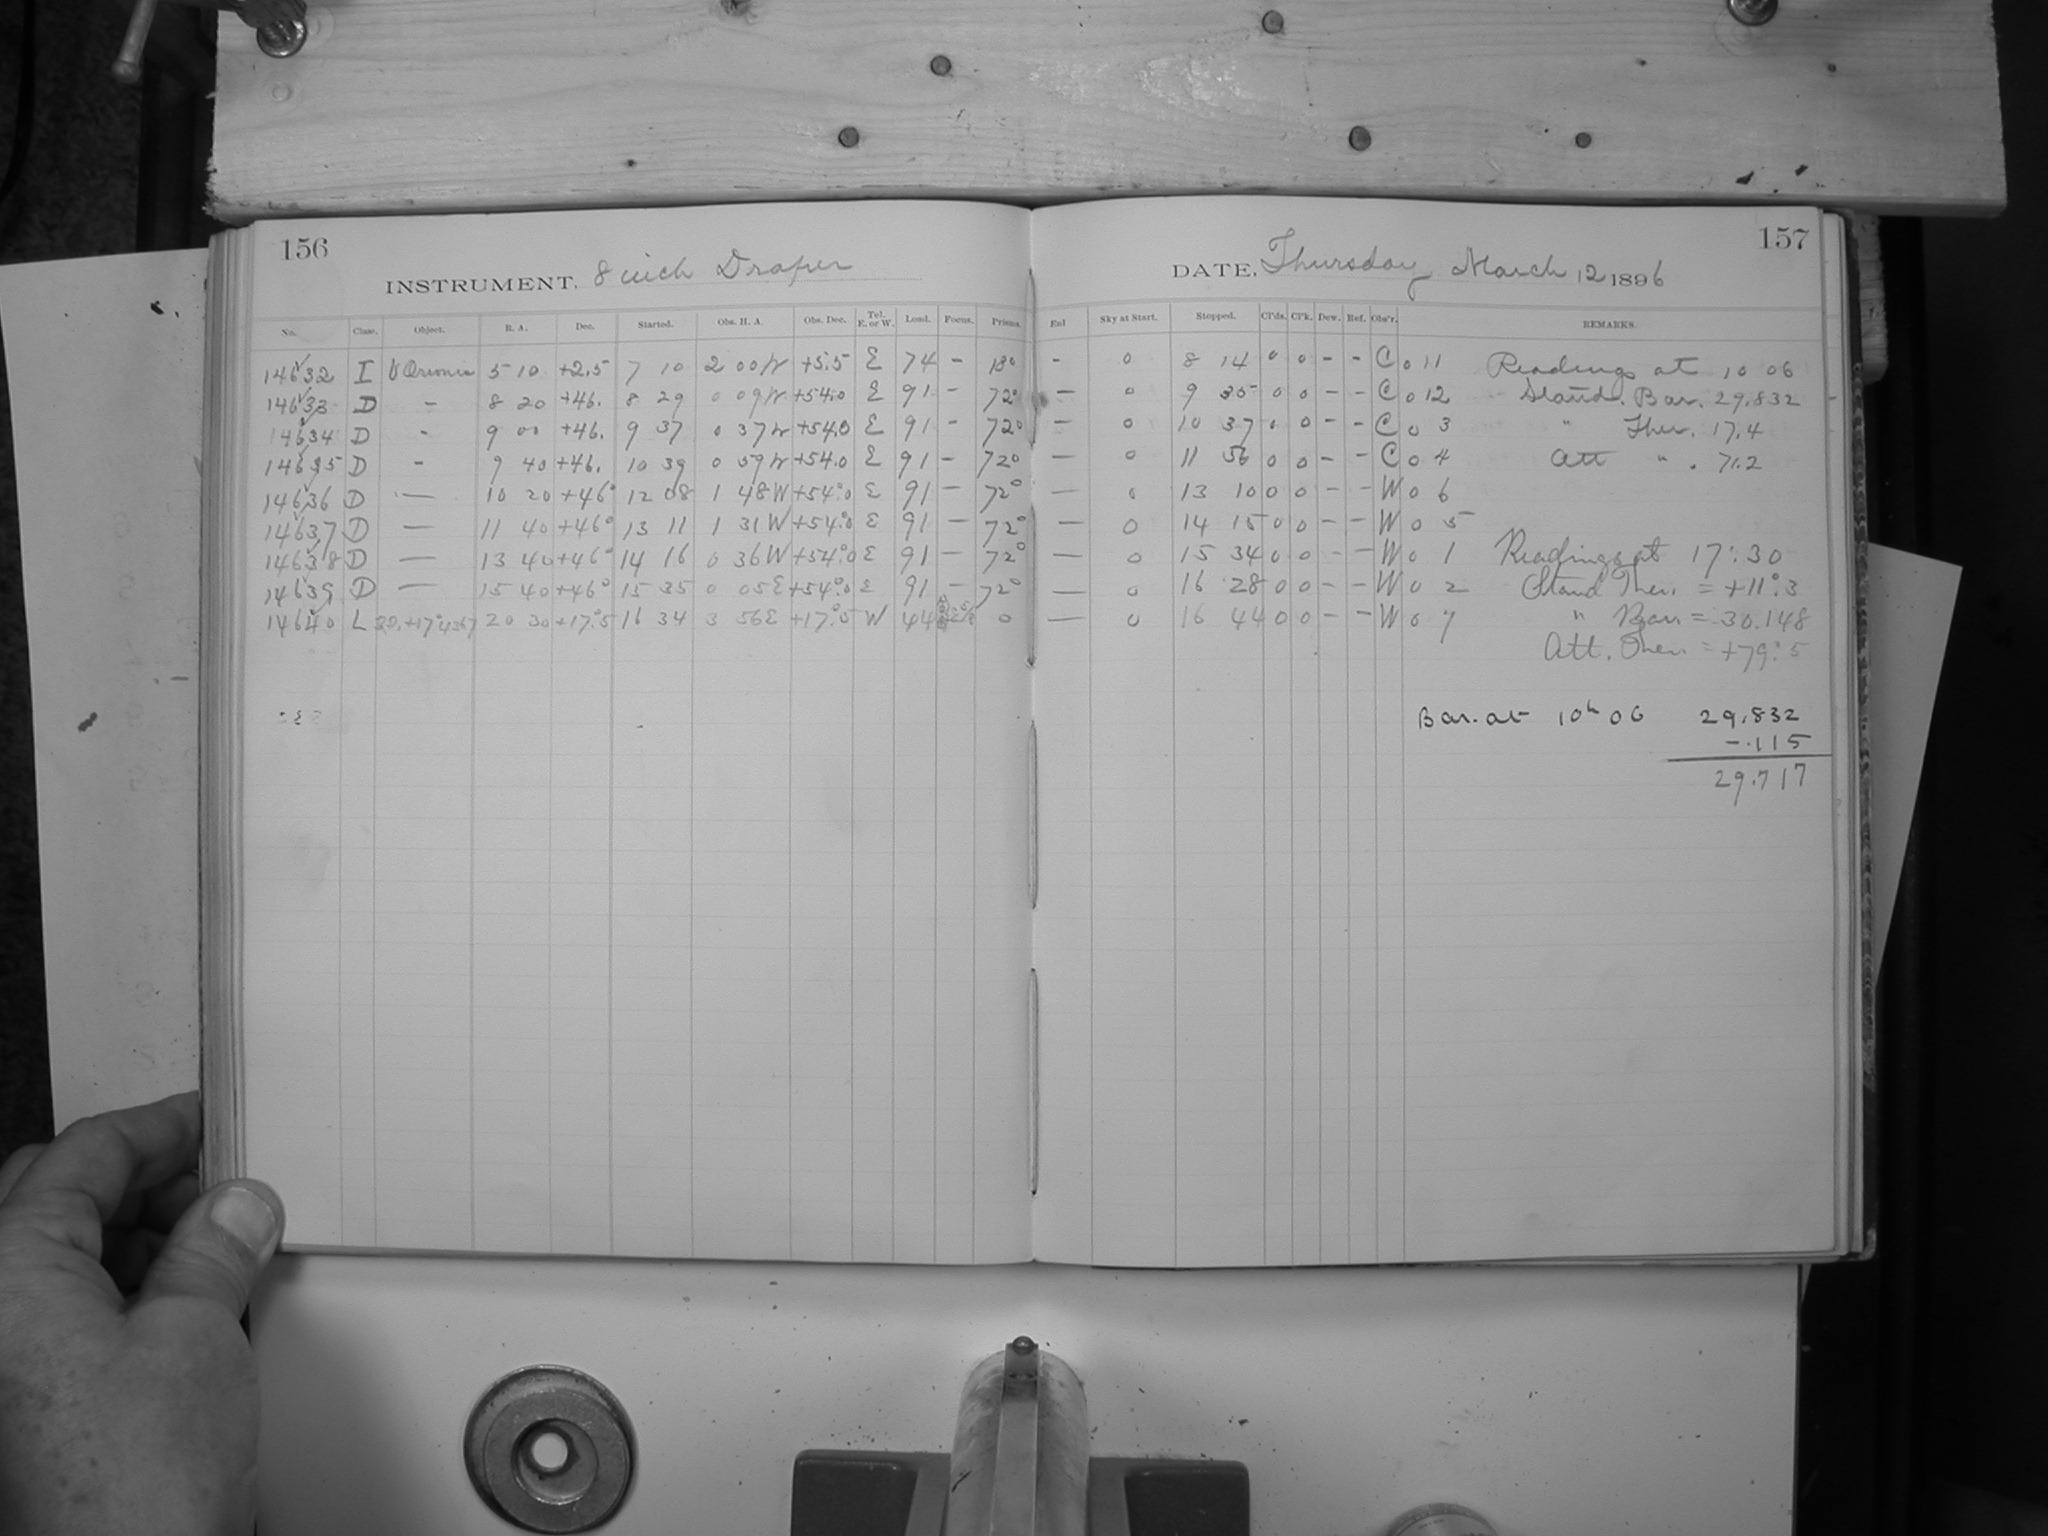 156
INSTRUMENT, 8 inch Draper
No. Class. Object. R. A. Dec. Started. Obs. H. A. Obs. Dec. Tel. E. or W. Load. Focus. Prisms.
14632 I U Orionis 5 10 +2.5 7 10 2 00 W +5.5 E 74 - 13°
14633 D - 8 20 +46. 8 29 0 09 W +54.0 E 91 - 72°
14634 D - 9 00 +46. 9 37 0 37 W +54.0 E 91 - 72°
14635 D - 9 40 +46. 10 39 0 59 W +54.0 E 91 - 72°
14636 D — 10 20 +46° 12 08 1 48 W +54°.0 E 91 - 72°
14637 D — 11 40 +46° 13 11 1 31 W +54°.0 E 91 — 72°
14638 D — 13 40 +46° 14 16 0 36 W +54°.0 E 91 — 72°
14639 D — 15 40 +46° 15 35 0 05 E +54°.0 E 91 - 72°
14640 L +17°4367 20 30 +17°.5 16 34 3 56 E +17°.5 W 44 0
157
DATE, Thursday March 12 1896
Enl Sky at Start. Stopped. Cl'ds. Cl'k. Dew. Ref. Obs'r. REMARKS.
- 0 8 14 0 0 - - C 0 11 Readings at 10 06
— 0 9 35 0 0 - - C 0 12 " Stand. Bar. 29.832
— 0 10 37 0 0 - - C 0 3 " Ther. 17.4
— 0 11 56 0 0 - - C 0 4 Att " . 71.2
— 0 13 10 0 0 - - W 0 6
— 0 14 15 0 0 - - W 0 5
— 0 15 34 0 0 - - W 0 1 Readings at 17:30
— 0 16 28 0 0 - - W 0 2 Stand Ther. = +11°.3
— 0 16 44 0 0 - - W 0 7 " Bar. = 30.148
Att. Ther. = +79°.5
Bar. at 10h 06 29.832
-.115
29.717